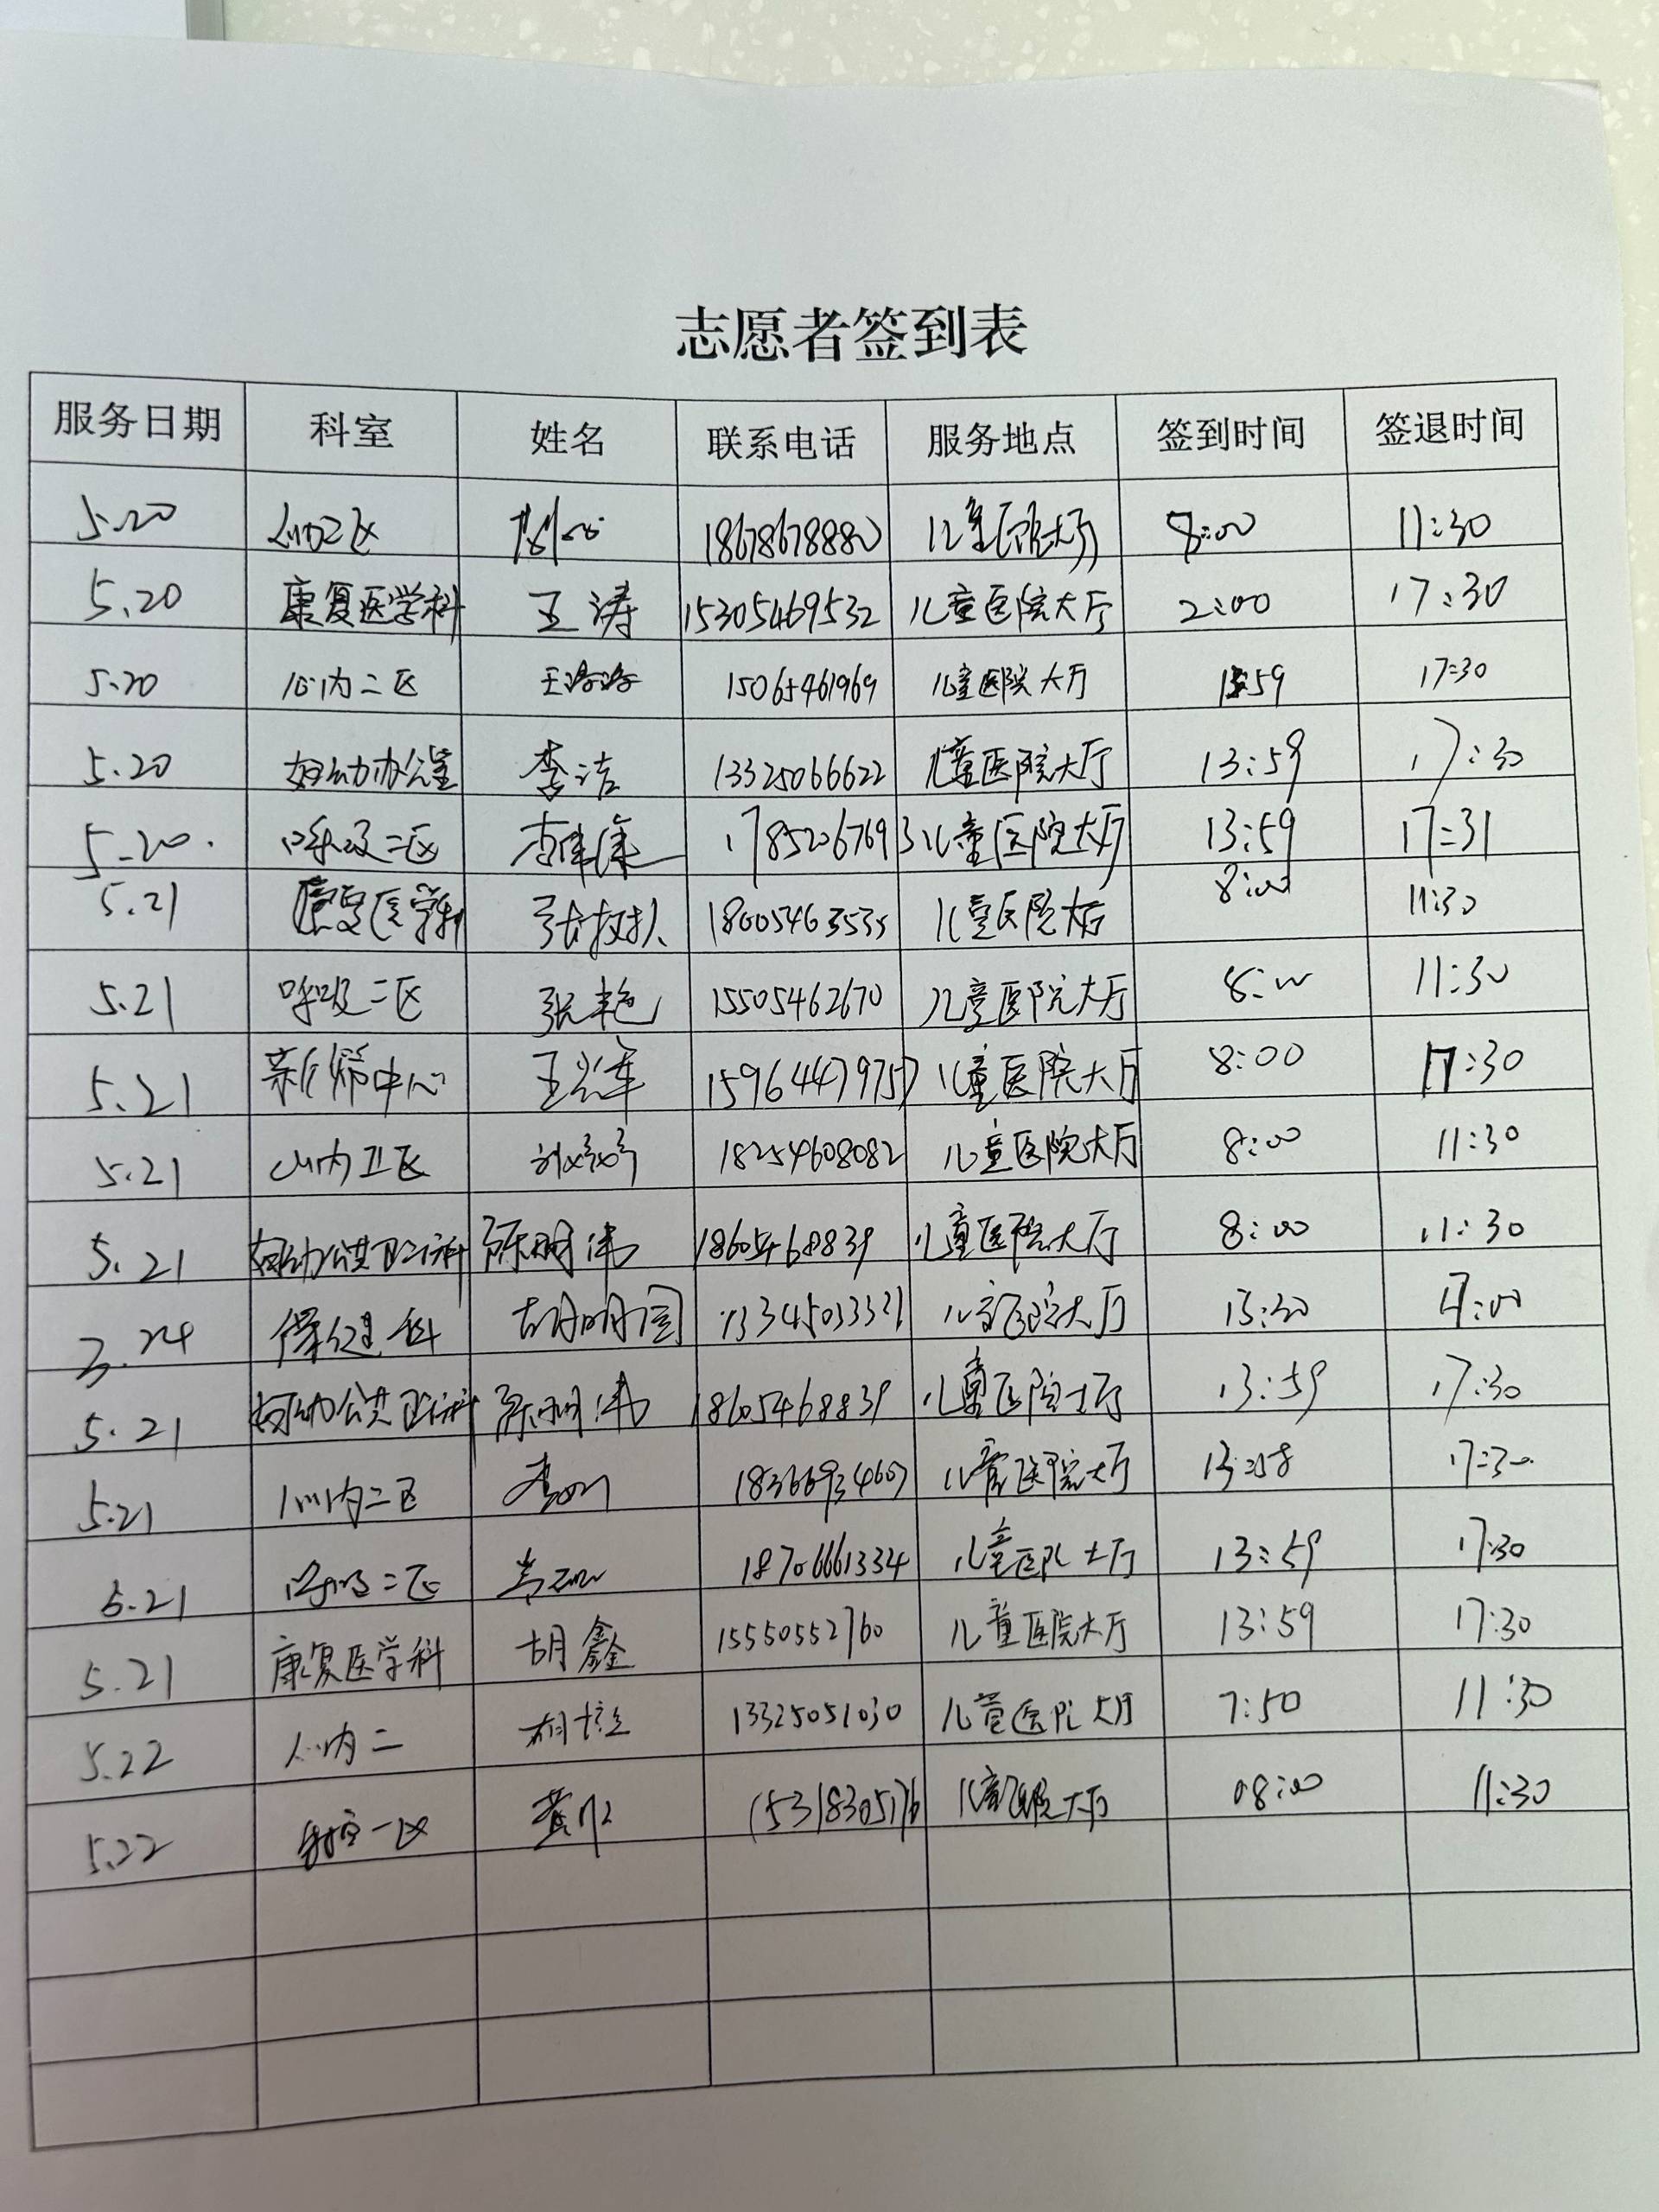 志愿者签到表
服务日期 科室 姓名 联系电话 服务地点 签到时间 签退时间
5.20 18678678880 儿童医院大厅 8:00 11:30
5.20 康复医学科 王涛 15305469532 儿童医院大厅 2:00 17:30
5.20 心内二区 王洛洛 15065461969 儿童医院大厅 17:30
5.20 妇幼办公室 李洁 13325066622 儿童医院大厅 13:59 17:30
5.20. 呼吸二区 17852067693 儿童医院大厅 13:59 17:31
5.21 康复医学科 儿童医院大厅 8:00 11:30
5.21 呼吸二区 张艳 15505462670 儿童医院大厅 8:00 11:30
5.21 新筛中心 儿童医院大厅 8:00 17:30
5.21 18254608082 儿童医院大厅 8:00 11:30
5.21 妇幼公共卫生科 陈明伟 18605468839 儿童医院大厅 8:00 11:30
保健科 儿童医院大厅
5.21 妇幼公共卫生科 陈明伟 18605468839 儿童医院大厅 13:59 17:30
5.21 心内二区 儿童医院大厅 13:58 17:30
5.21 呼吸二区 18706661334 儿童医院大厅 13:59 17:30
5.21 康复医学科 胡鑫 15550552760 儿童医院大厅 13:59 17:30
5.22 心内二 13325051030 儿童医院大厅 7:50 11:30
5.22 15318305176 儿童医院大厅 08:00 11:30